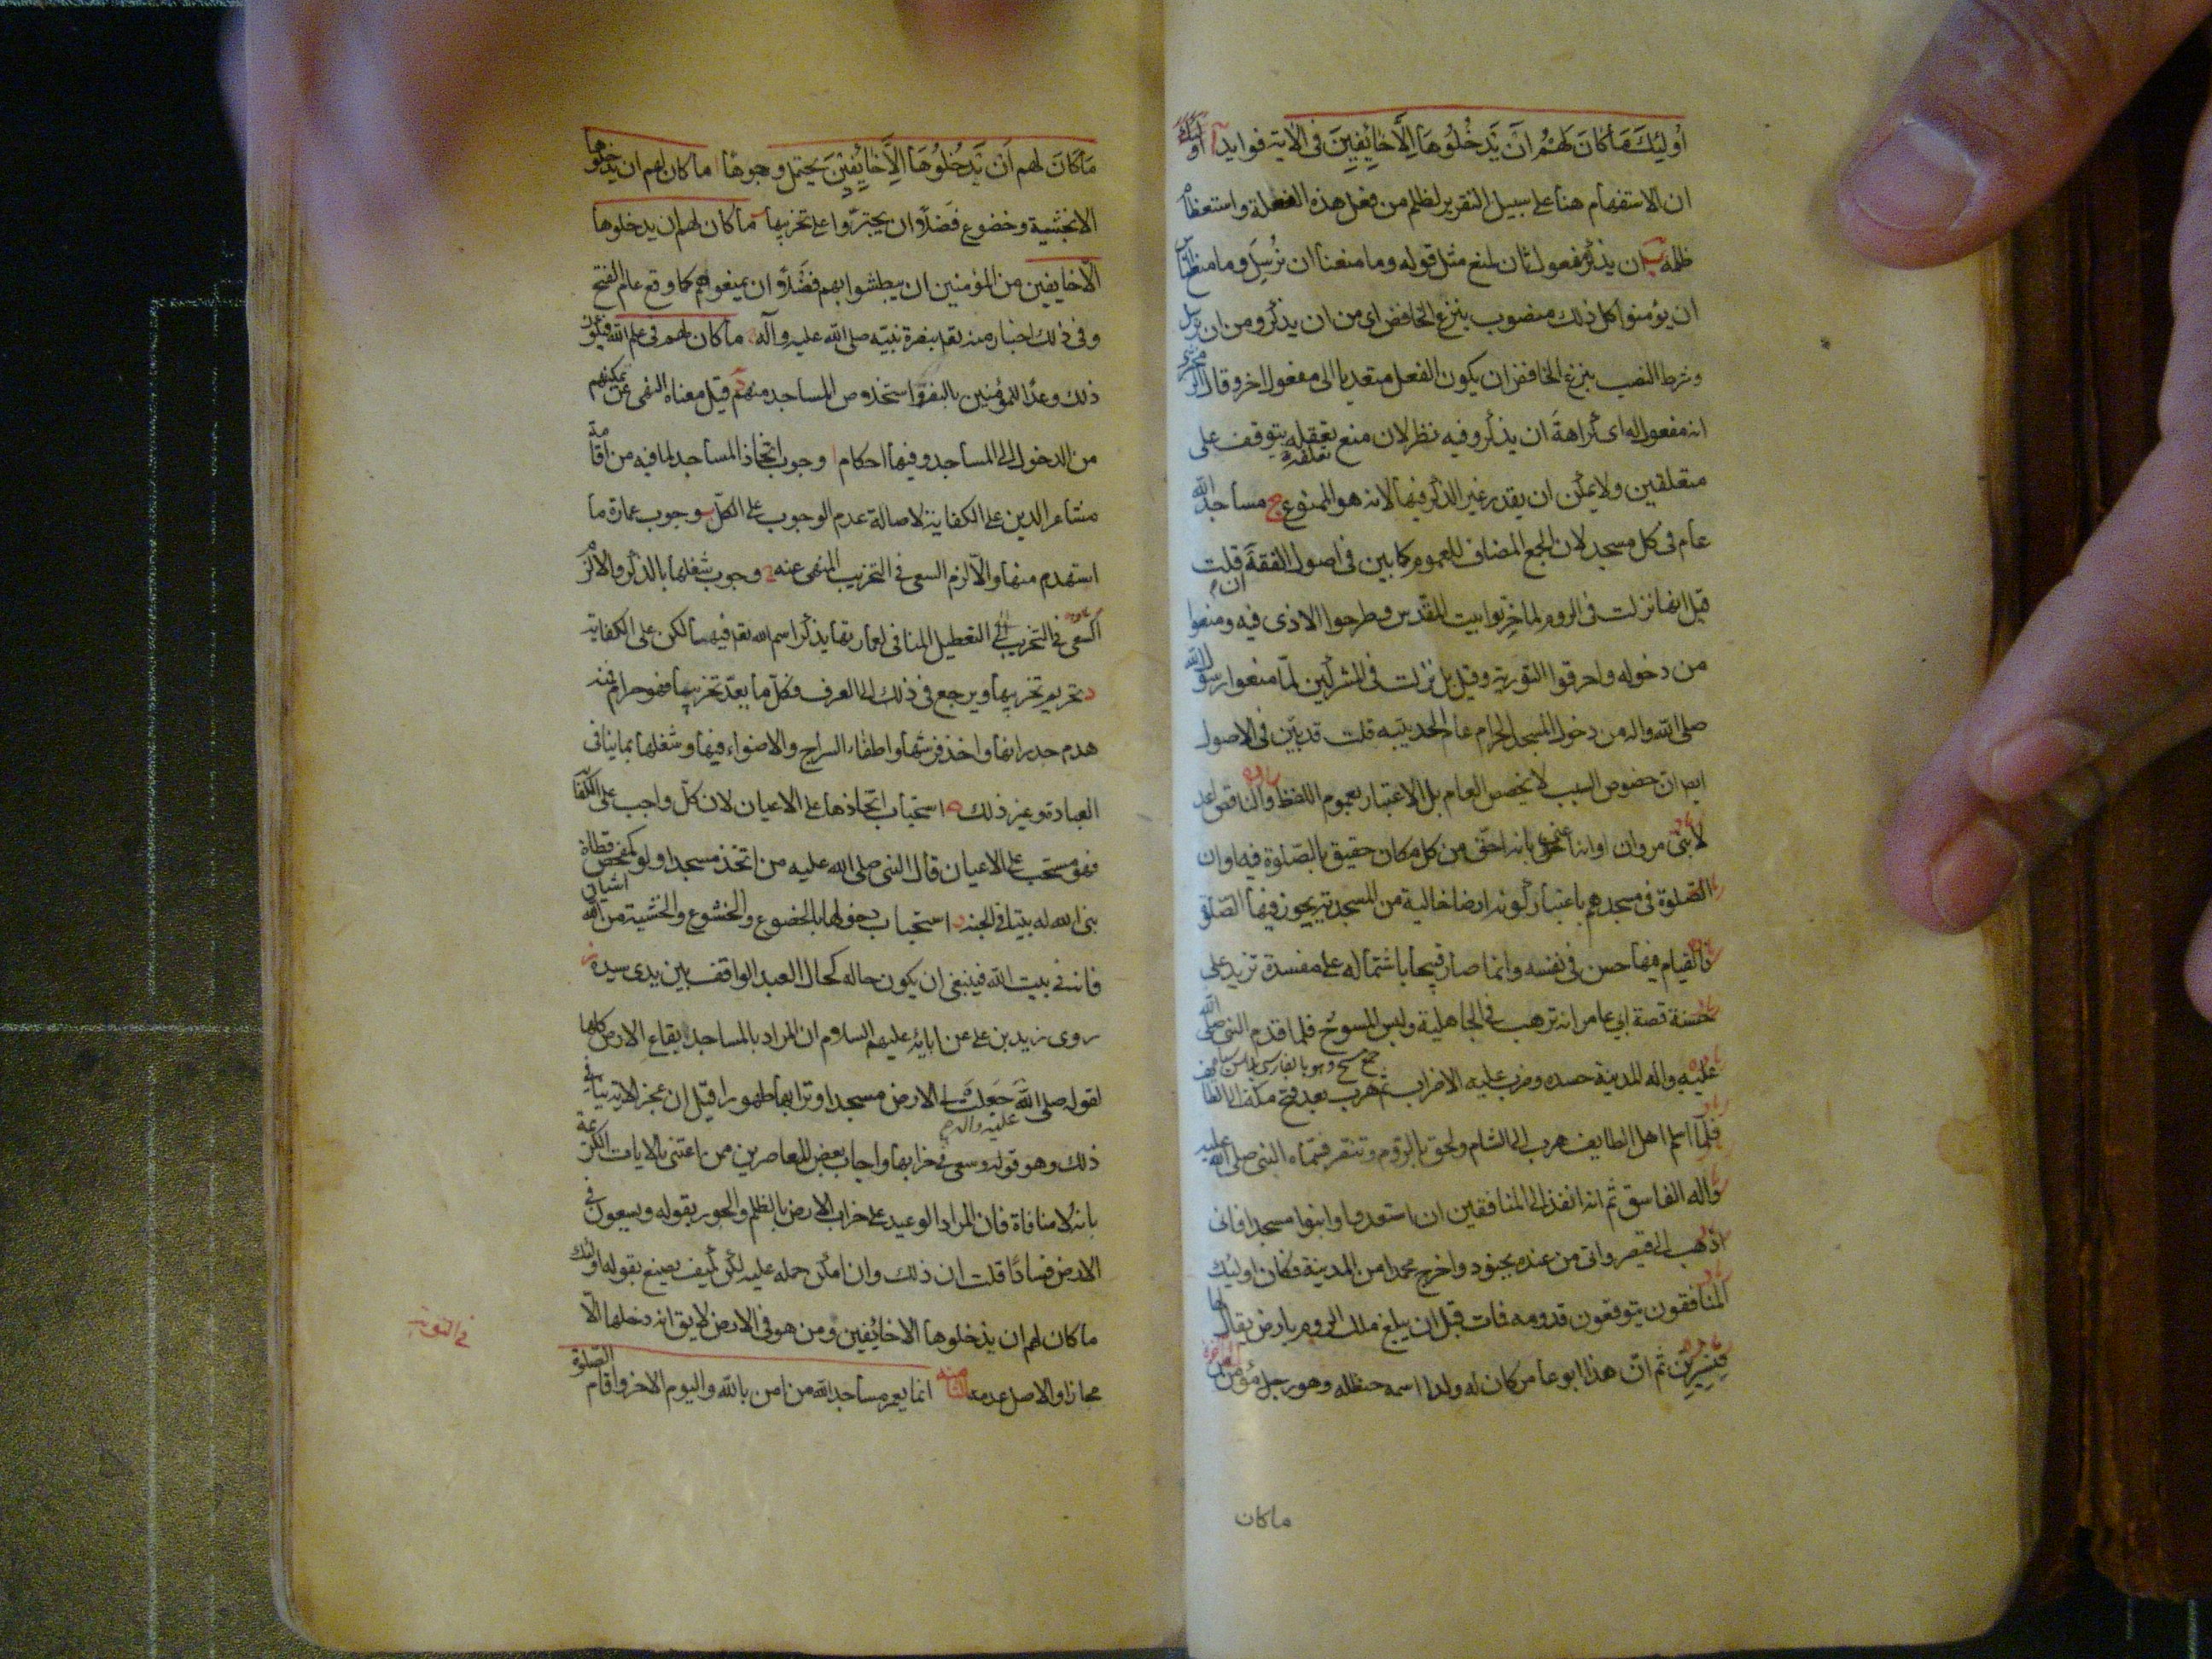 أُولَئِكَ مَا كَانَ لَهُمْ أَنْ يَدْخُلُوهَا إِلَّا خَائِفِينَ فى الاية فوايد آ
ان الاستفهام هنا على سبيل التقرير لظلم من فعل هذه الفعلة واستعظام
ظلمه ب ان يذكر مفعول ثان لمنع مثل قوله وما منعنا ان نُرسِلَ وما منع الناس
ان يؤمنوا كل ذلك منصوب بنزع الخافض اى من ان يذكر ومن ان نرسل
وشرط النصب بنزع الخافض ان يكون الفعل متعديا الى مفعول اخر وقال الزمخشرى
انه مفعول له اى كراهة ان يذكر وفيه نظر لان منع تعقله يتوقف على
متعلقين ولا يمكن ان يقدر غير الذكر فيها لانه هو الممنوع ج مساجد الله
عام فى كل مسجد لان الجمع المضاف للعموم كما بين فى اصول الفقه قلت
قيل انها نزلت فى الروم لما خربوا بيت المقدس وطرحوا الاذى فيه ومنعوا
من دخوله واحرقوا التورية وقيل بل نزلت فى المشركين لمّا منعوا رسول الله
صلى الله واله من دخول المسجد الحرام عام الحديبية قلت قد بيّن فى الاصول
ان خصوص السبب لا يخصص العام بل الاعتبار بعموم اللفظ والناقص اعد
لابنى مروان بانه احق من كل مكان حقيق بالصلوة فيه او ان
الصلوة فى مسجدهم باعتبار كونه ارضا خالية من المسجدية يجوز فيها الصلوة
فالقيام فيها حسن فى نفسه وانما صار قبيحا باشتماله على مفسدة تزيد على
حسنه قصة ابى عامر انه ترهب فى الجاهلية ولبس المسوح فلما قدم النبى صلى الله
عليه واله المدينة حسده وحزب عليه الاحزاب ثم هرب بعد فتح مكة الى الطا
فلما اسلم اهل الطايف هرب الى الشام ولحق بالروم وتنصر فسماه النبى صلى الله عليه
واله الفاسق ثم انه انفذ الى المنافقين ان استعدوا وابنوا مسجدا فانى
اذهب الى قيصر واتى من عنده بجنود واخرج محمدا من المدينة فكان اوليك
المنافقون يتوقعون قدومه فمات قبل ان يبلغ ملك الروم بارض يقال لها
قنسرين ثم انّ هذا ابو عامر كان له ولد اسمه حنظله وهو رجل مؤمن
ما كان
مَا كَانَ لهم اَن يَدخُلُوهَا اِلَّا خَائِفِينَ يحتمل وجوها ا ما كان لهم ان يدخلوها
الا بخشية وخضوع فضلا ان يجترّوا على تخريبها ب ما كان لهم ان يدخلوها
الا خايفين من المؤمنين ان يبطشوا بهم فضلا ان يمنعوهم كما وقع عام الفتح
وفى ذلك اخبار منه تعم بنصرة نبيّه صلى الله عليه وآله ما كان لهم فى علم الله فيكون
ذلك وعدا للمؤمنين بالنصر واستخلاص المساجد منهم قيل معناه النهى عن تمكينهم
من الدخول الى المساجد وفيها احكام ا وجوب اتخاذ المساجد لما فيه من اقامة
مشاعر الدين على الكفاية لاصالة عدم الوجوب على الكل ب وجوب عمارة ما
استهدم منها والا لزم السعى فى التخريب المنهى عنه وجوب شغلها بالذكر والا لزم
السعى فى التخريب التعطيل المنافى لعمارتها بذكر اسم الله تعم فيها لكن على الكفاية
د تحريم تخريبها ويرجع فى ذلك الى العرف فكلّ ما يعدّ تخريبا فهو حرام فمنه
هدم جدرانها واخذ فرشها واطفاء السراج والاضواء فيها وشغلها بما ينافى
العبادة وغير ذلك ه استحباب اتخاذها على الاعيان لان كل واجب على الكفا
فهو مستحب على الاعيان قال النبى صلى الله عليه من اتخذ مسجدا ولو كمفحص قطاة
بنى الله له بيتا فى الجنة استحباب دخولها بالخضوع والخشوع والخشية من الله
فانه فى بيت الله فينبغى ان يكون حاله كحال العبد الواقف بين يدى سيده
روى زيد بن على عن ابائه عليهم السلام ان المراد بالمساجد بقاع الارض كلها
لقوله صلى الله عليه واله جعلت لى الارض مسجدا وترابها طهورا قيل ان عجز الاية ينافى
ذلك وهو قوله وسعى فى خرابها واجاب بعض المعاصرين ممن اعتنى بالايات الكريمة
بانه لا منافاة فان المراد الوعيد على خراب الارض بالظلم والجور بقوله ويسعون فى
الارض فسادًا قلت ان ذلك وان امكن حمله عليه لكن كيف يصنع بقوله اوليك
ما كان لهم ان يدخلوها الا خائفين ومن هو فى الارض لا يق انه دخلها الا
مجازا والاصل عدمه انما يعمر مساجد الله من امن بالله واليوم الاخر واقام الصلوة
فى التوبة